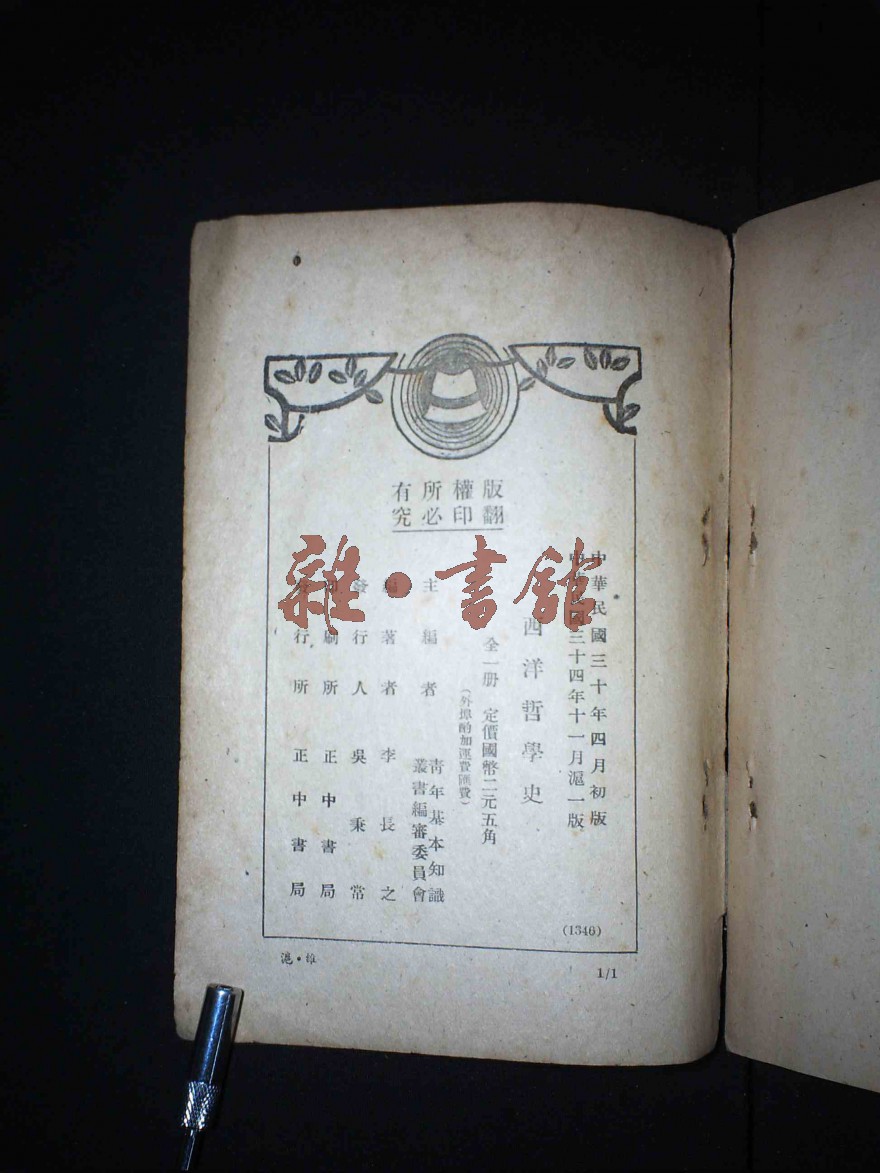 版權所有
翻印必究
中華民國三十年四月初版
中華民國三十四年十一月滬一版
西洋哲學史
全一冊 定價國幣二元五角
(外埠酌加運費匯費)
主編者 青年基本知識
叢書編審委員會
編著者 李長之
發行人 吳秉常
印刷所 正中書局
發行所 正中書局
(1346)
滬・維
1/1
雜・書館